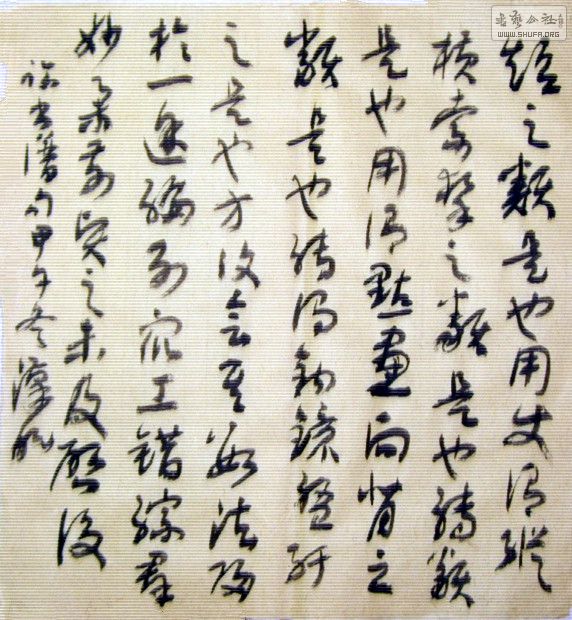 短之類是也用使謂縱
橫牽掣之類是也轉類
是也用謂點畫向背之
類是也轉謂鉤鐶盤紆
之是也方復會其數法歸
於一途編列眾工錯綜群
妙舉前賢之未及啟後
書譜句甲午冬漢
書藝公社
WWW.SHUFA.ORG